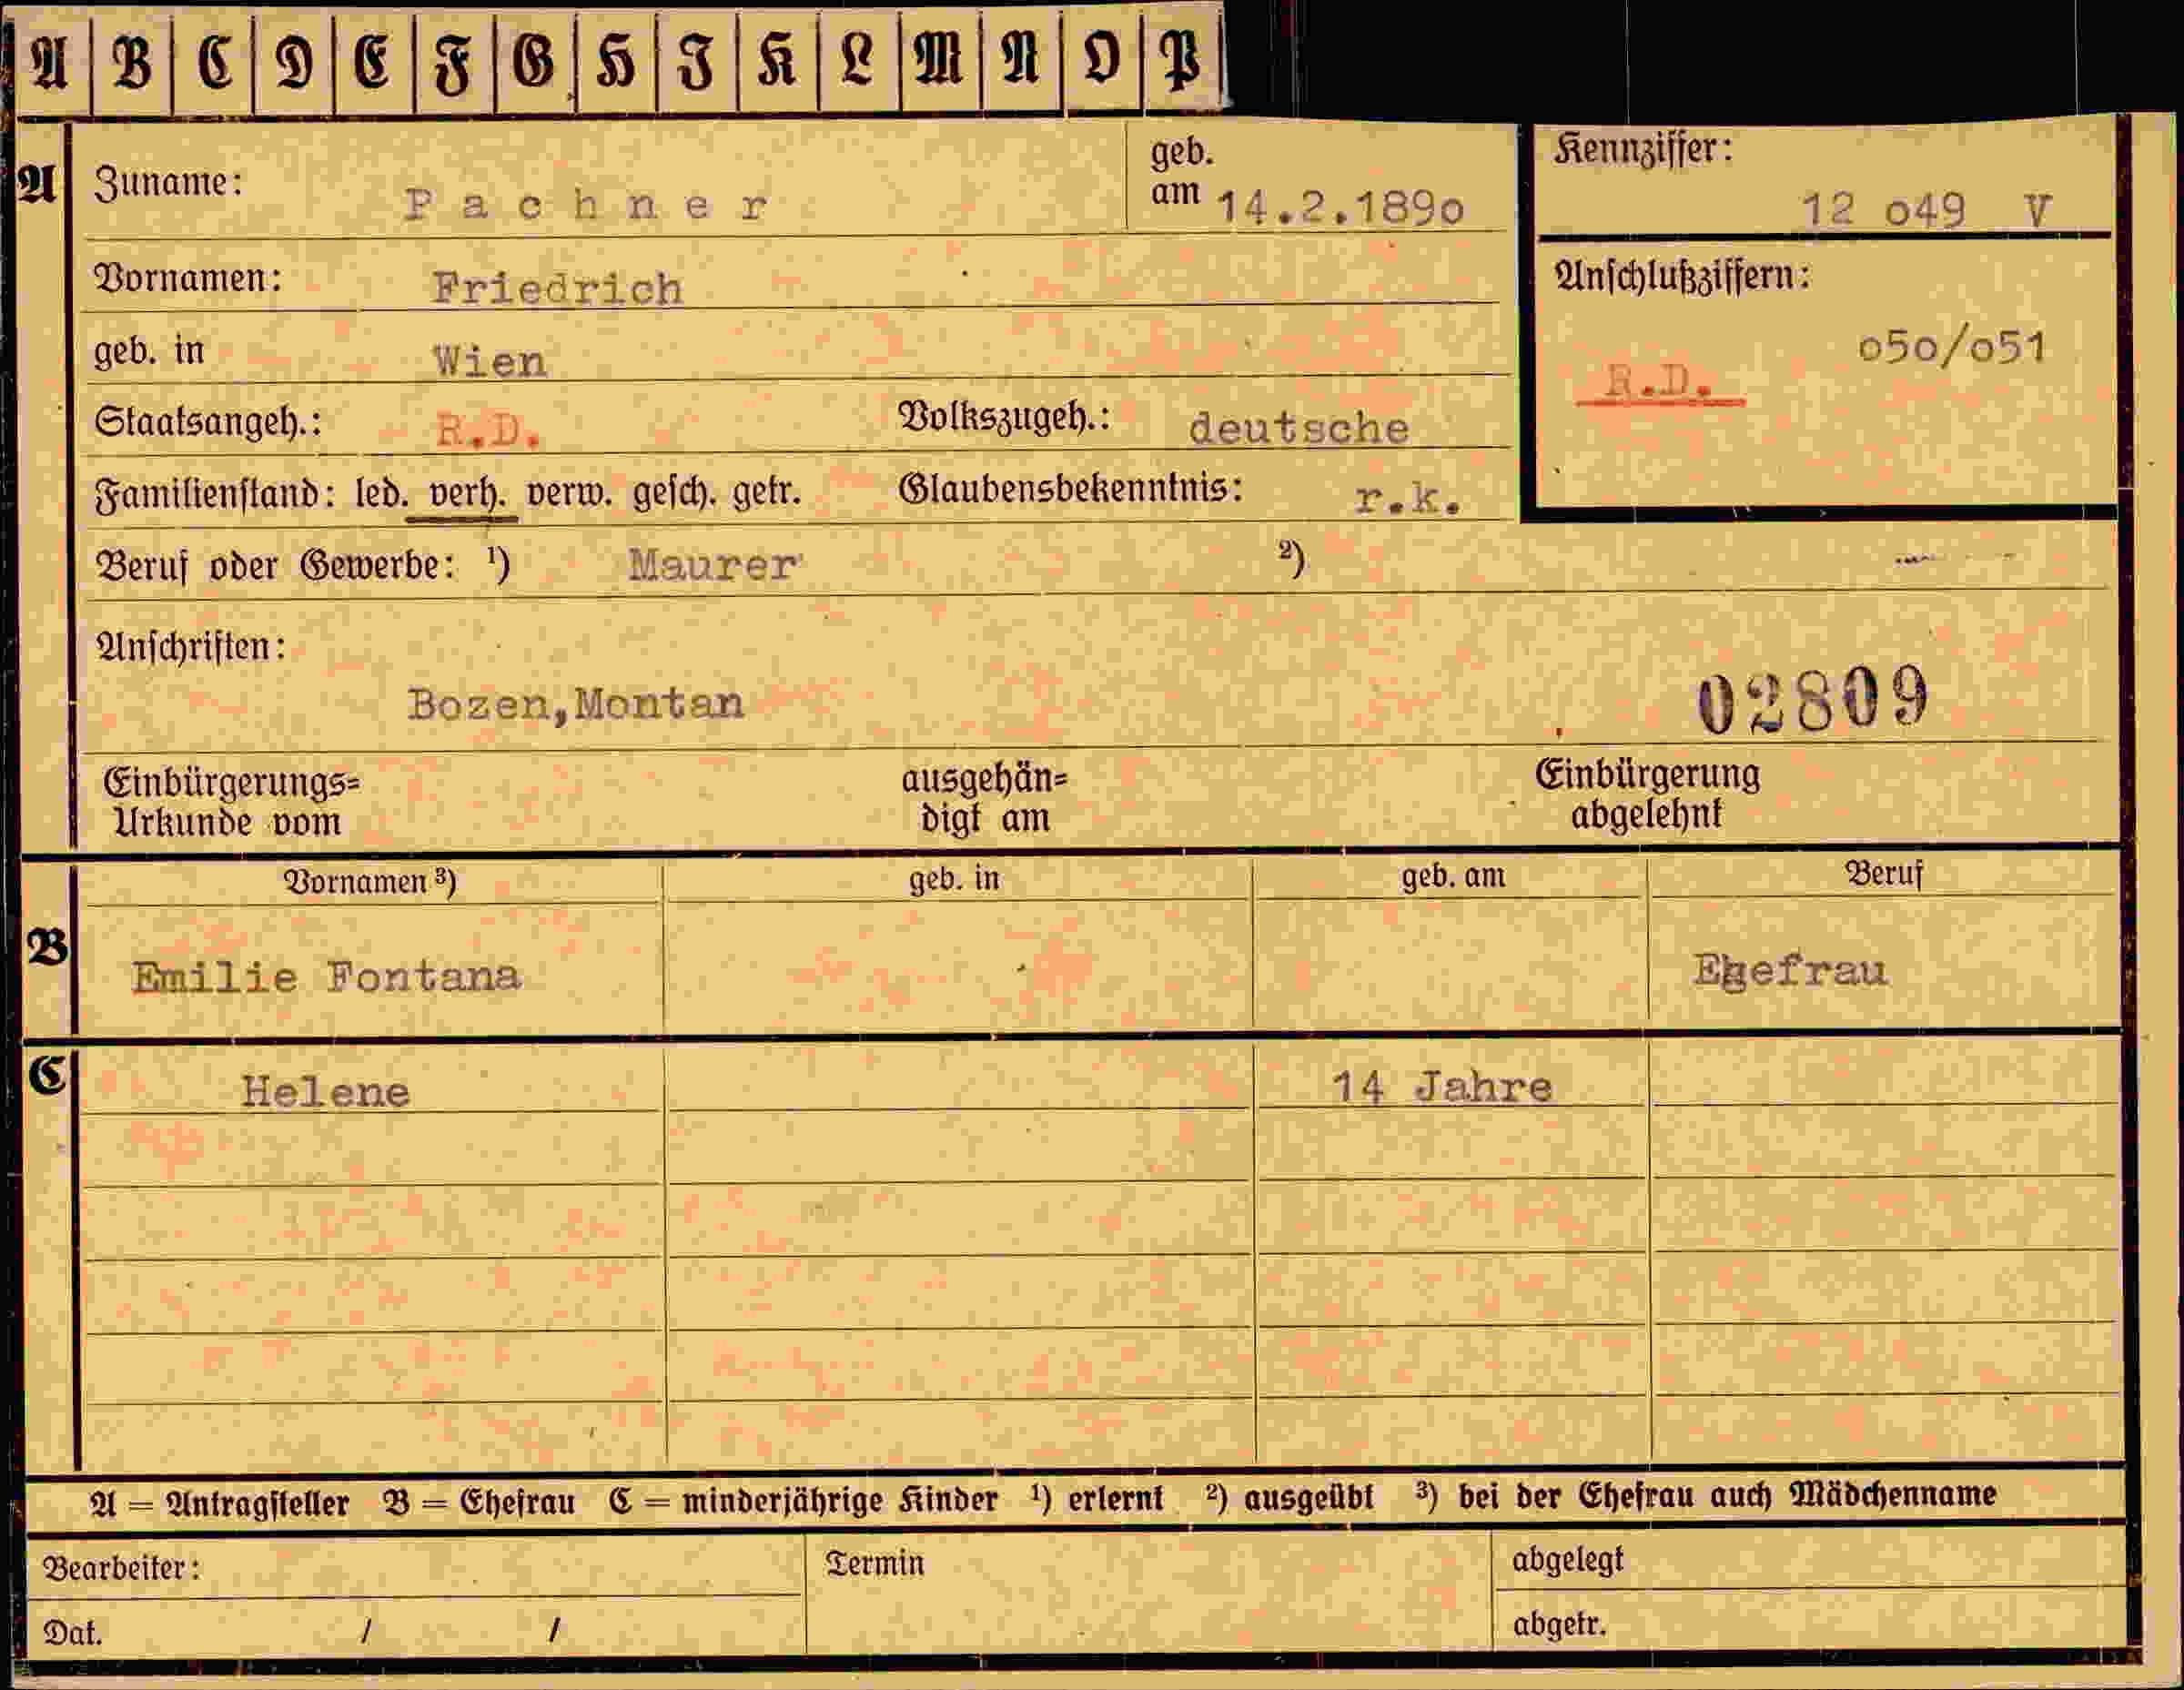 A B C D E F G H I K L M N O P
A Zuname: Pachner geb. am 14.2.189o Kennziffer: 12 o49 V
Vornamen: Friedrich Anschlußziffern:
geb. in Wien o5o/o51
R.D.
Staatsangeh.: R.D. Volkszugeh.: deutsche
Familienstand: led. verh. verw. gesch. getr. Glaubensbekenntnis: r.k.
Beruf oder Gewerbe: ¹) Maurer ²)
Anschriften:
Bozen,Montan 02809
Einbürgerungs= ausgehän= Einbürgerung
Urkunde vom digt am abgelehnt
Vornamen ³) geb. in geb. am Beruf
B Emilie Fontana Ehefrau
C Helene 14 Jahre
A = Antragsteller B = Ehefrau C = minderjährige Kinder ¹) erlernt ²) ausgeübt ³) bei der Ehefrau auch Mädchenname
Bearbeiter: Termin abgelegt
Dat. / / abgetr.